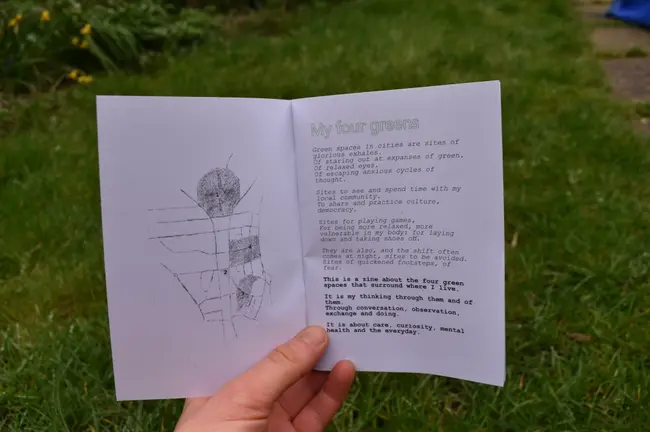 My four greens
Green spaces in cities are sites of
glorious exhales.
Of staring out at expanses of green,
Of relaxed eyes,
Of escaping anxious cycles of
thought.
Sites to see and spend time with my
local community.
To share and practice culture,
democracy.
Sites for playing games,
For being more relaxed, more
vulnerable in my body: for laying
down and taking shoes off.
They are also, and the shift often
comes at night, sites to be avoided.
Sites of quickened footsteps, of
fear.
This is a zine about the four green
spaces that surround where I live.
It is my thinking through them and of
them.
Through conversation, observation,
exchange and doing.
It is about care, curiosity, mental
health and the everyday.